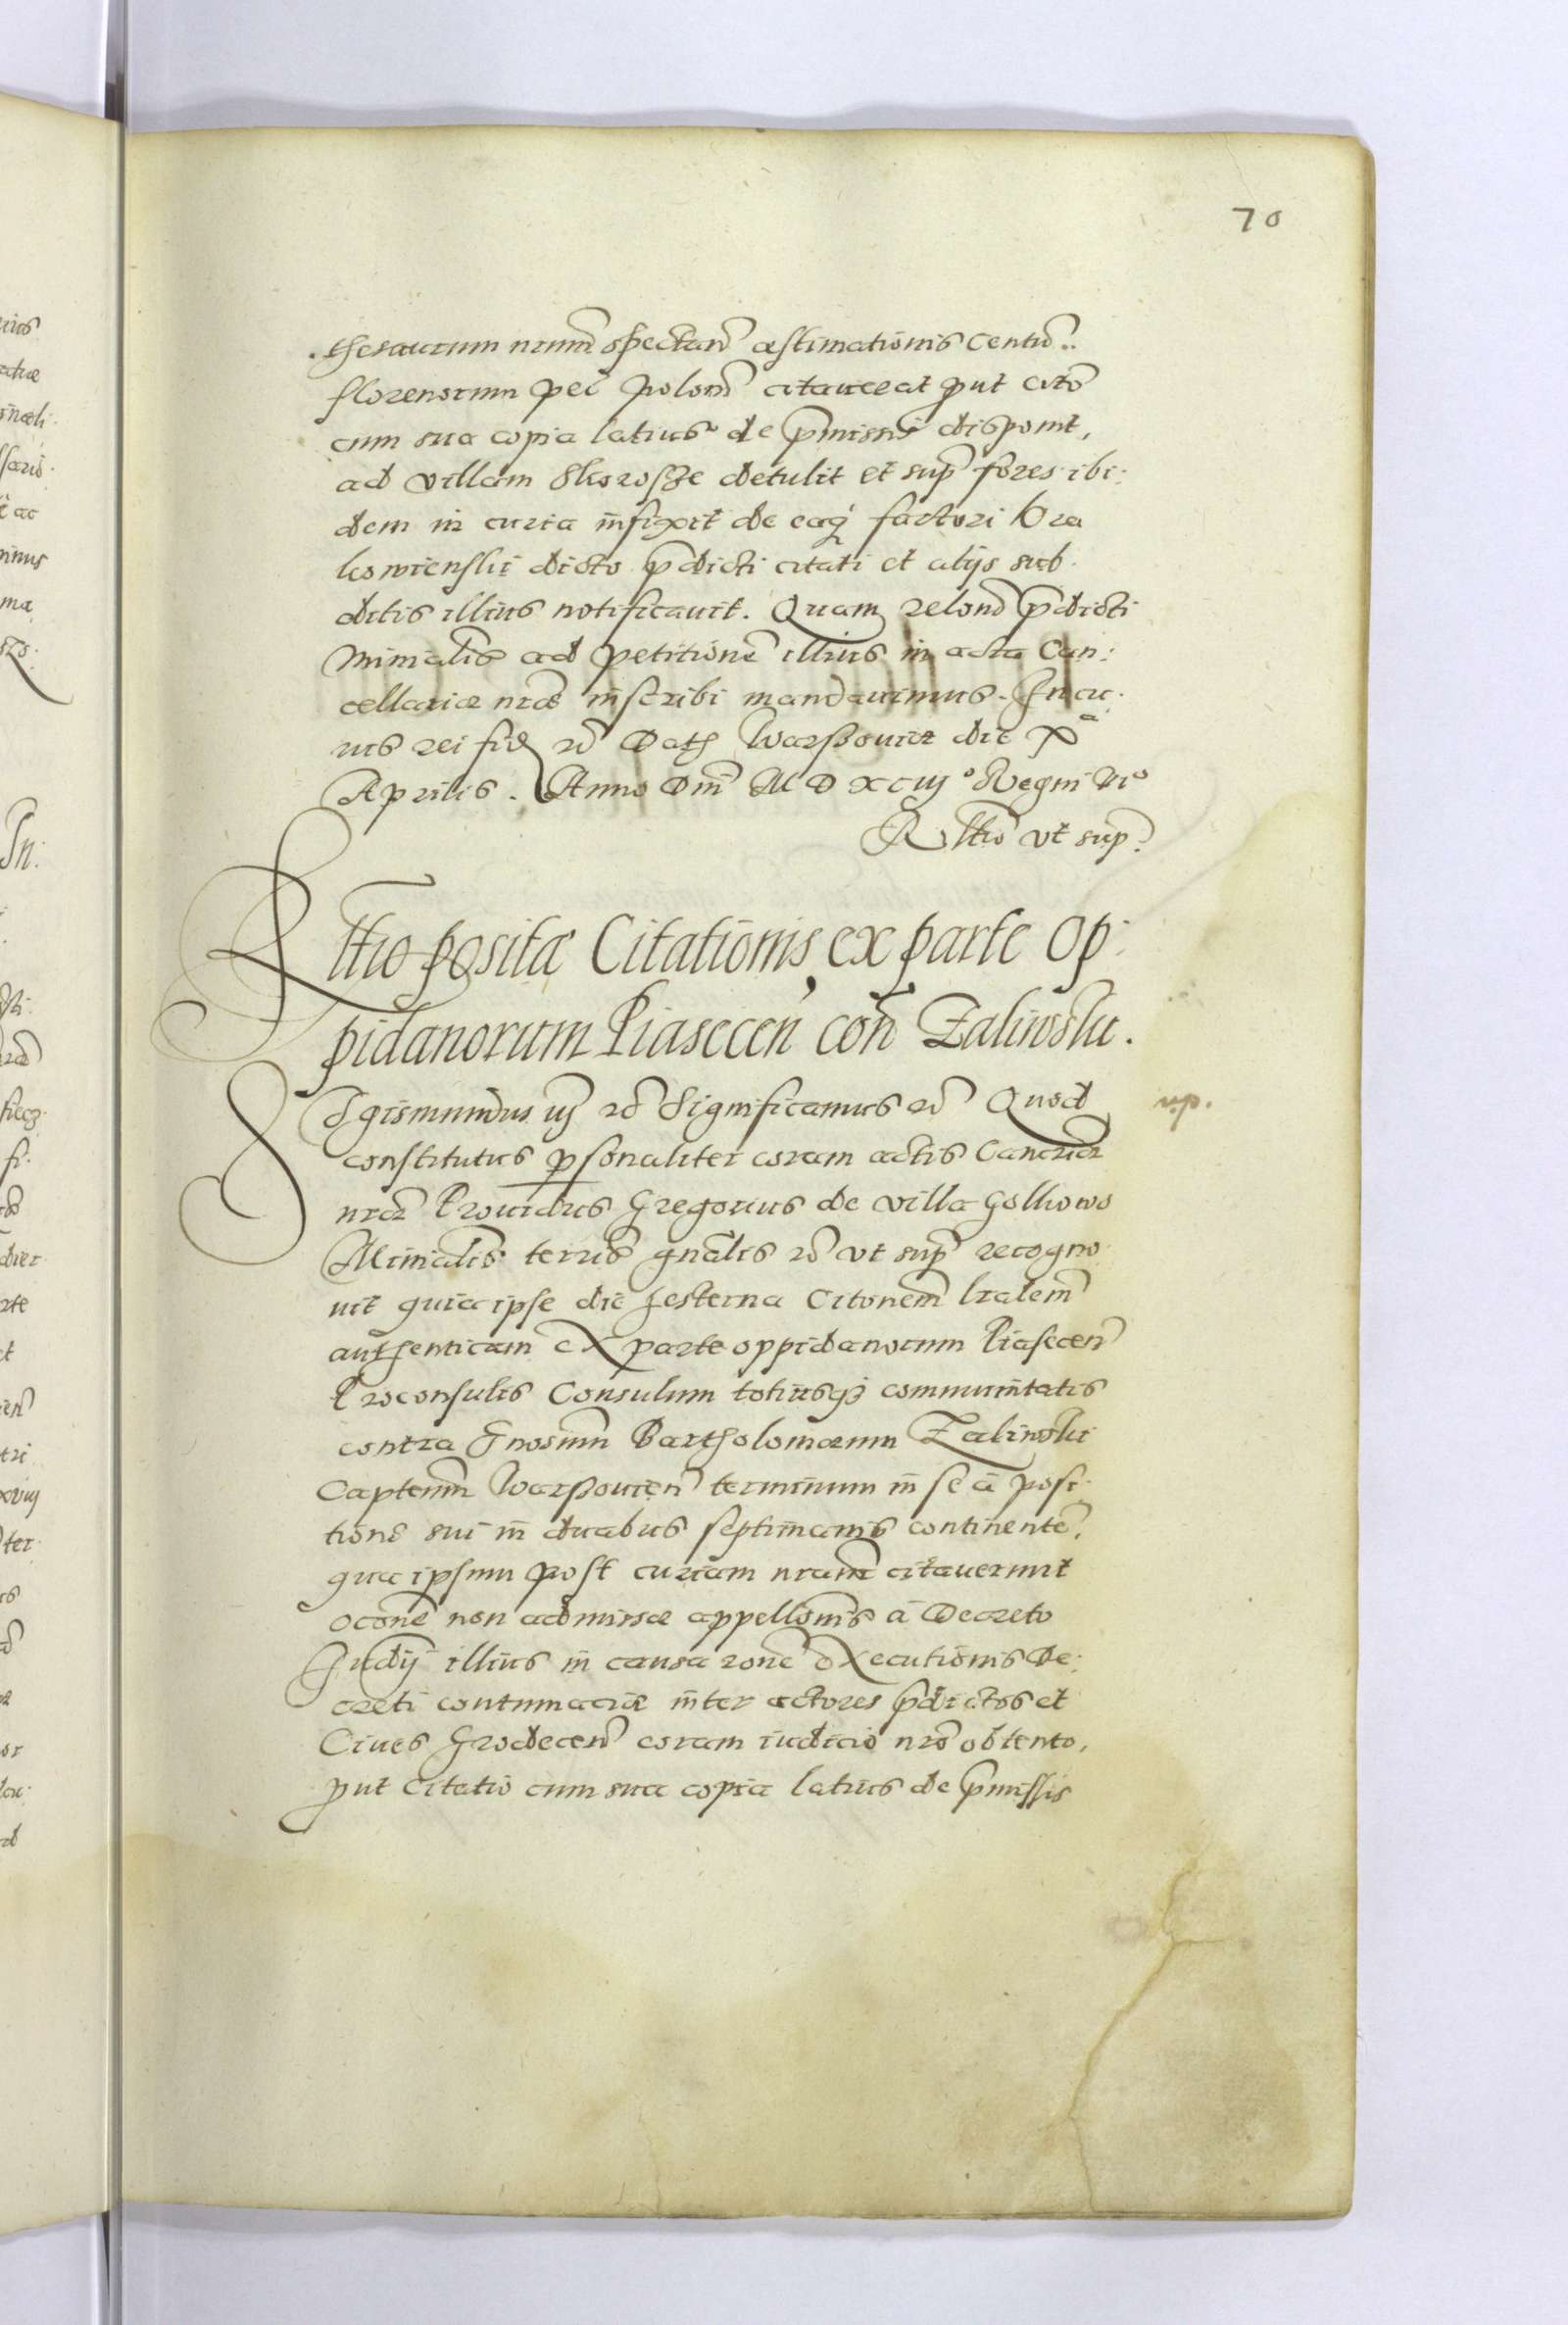 70
thesaurum nrum spectan aestimationis centu..
florenorum pec polon citaverat put cito
cum sua copia latius de pmissis disponit,
ad villam Skorosze detulit et sup fores ibi:
dem in curia infixit de eaq factori Kra
kowienski dicto pdicti citati et alijs sub
ditis illius notificavit. Quam relone pdicti
Minialis ad petitione illius in acta Can:
cellariae nrae inscribi mandavimus. In cu:
ius rei fid rc Dath Warssoviae die Xa
Aprilis. Anno Dni M D XCIIJ° Regni Nri
Rltio vt sup:
Rltio posita Citationis, ex parte Op:
pidanorum Piasecen con Zalinski.
Sigismundus iij rc Significamus rc Quod
constitutus psonaliter coram actis Cancriae
nrae Providus Gregorius de villa Golkowo
Minialis terris gnalis rc vt sup recogno
vit quia ipse die hesterna Citonem lralem
authenticam ex parte oppidanorum Piasecen
Proconsulis Consulum totiusq communitatis
contra Gnosum Bartholomaeum Zalinski
Captenm Warssovien terminum in se a posi:
tione sui in duabus septimanis continente,
qua ipsum post curiam nram citaverunt
ocone non admissae appellonis a Decreto
Iudij illius in causa rone Executionis De:
creti contumaciae inter actores pdictos et
Cives Grodecen coram iudicio nro obtento,
put Citatio cum sua copia latius de pmissis